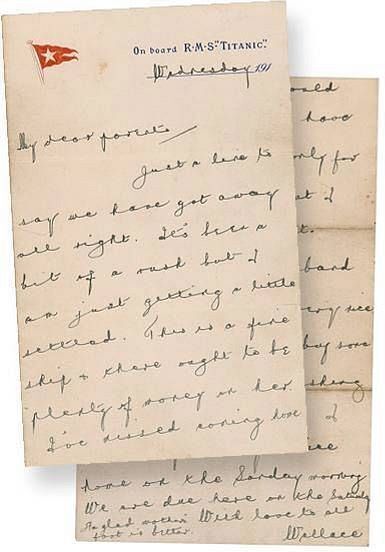 On board R.M.S "TITANIC".
Wednesday 191
My dear parents
Just a line to
say we have got away
all right. It's been a
bit of a rush but I
am just getting a little
settled. This is a fine
ship & there ought to be
plenty of money on her.
I've missed coming home
have
only for
I
band
very nice
buy some
I
home on the Sunday morning
We are due here on the Saturday
I'm glad mother's
foot is better. With love to all
Wallace